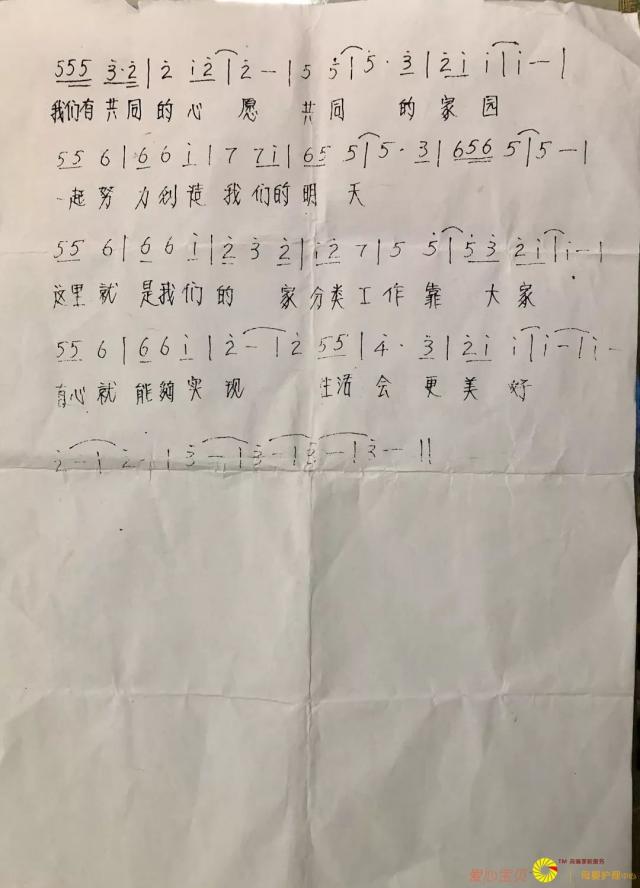 555 3·2 | 2 i2 | 2 — | 5 5 | 5· 3 | 2i i | i — |
我们有共同的心愿 共同的家园
55 6 | 6 6 i | 7 7i | 65 5 | 5· 3 | 656 5 | 5 — |
一起努力创造我们的明天
55 6 | 6 6 i | 2 3 2 | i2 7 | 5 5 | 53 2i | i — |
这里就是我们的家分类工作靠大家
55 6 | 6 6 i | 2 — | 2 55 | 4· 3 | 2i i | i — | i —
有心就能够实现 生活会更美好
2 — | 2 — | 3 — | 3 — | 3 — | 3 — ||
爱心宝贝 TM 高端家庭服务
母婴护理中心